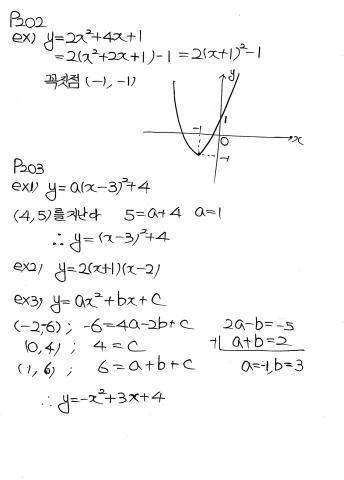 P202
ex) y=2x²+4x+1
=2(x²+2x+1)-1 =2(x+1)²-1
꼭짓점 (-1, -1)
y
1
-1
0
x
-1
P203
ex1) y=a(x-3)²+4
(4,5)를 지난다 5=a+4 a=1
∴ y=(x-3)²+4
ex2) y=2(x+1)(x-2)
ex3) y=ax²+bx+c
(-2,-6) ; -6=4a-2b+c 2a-b=-5
(0,4) ; 4=c +) a+b=2
(1,6) ; 6=a+b+c a=-1, b=3
∴ y=-x²+3x+4